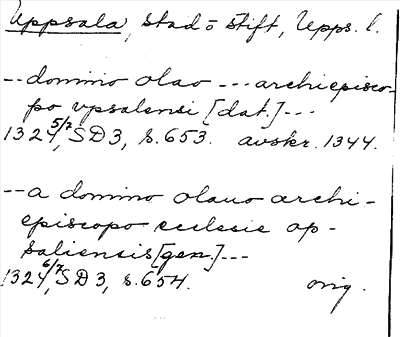 Uppsala, stad o stift, Upps. l.
-- domino olao --- archiepisco-
po vpsalensi [dat.] ---
1324 5/7, SD3, s. 653. avskr. 1344.
-- a domino olauo archi-
episcopo ecclesie op-
saliensis [gen.] ---
1324 6/7, SD3, s. 654. orig.